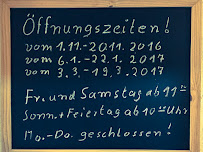 Öffnungszeiten!
vom 1.11.-20.11. 2016
vom 6.1.-22.1. 2017
vom 3.3.-19.3. 2017
Fr. und Samstag ab 11⁰⁰
Sonn.+Feiertag ab 10⁰⁰ Uhr
Mo.-Do. geschlossen!